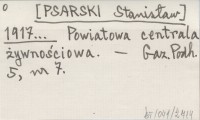 [PSARSKI Stanisław]
1917... Powiatowa centrala
żywnościowa. — Gaz. Podh.
5, nr 7.